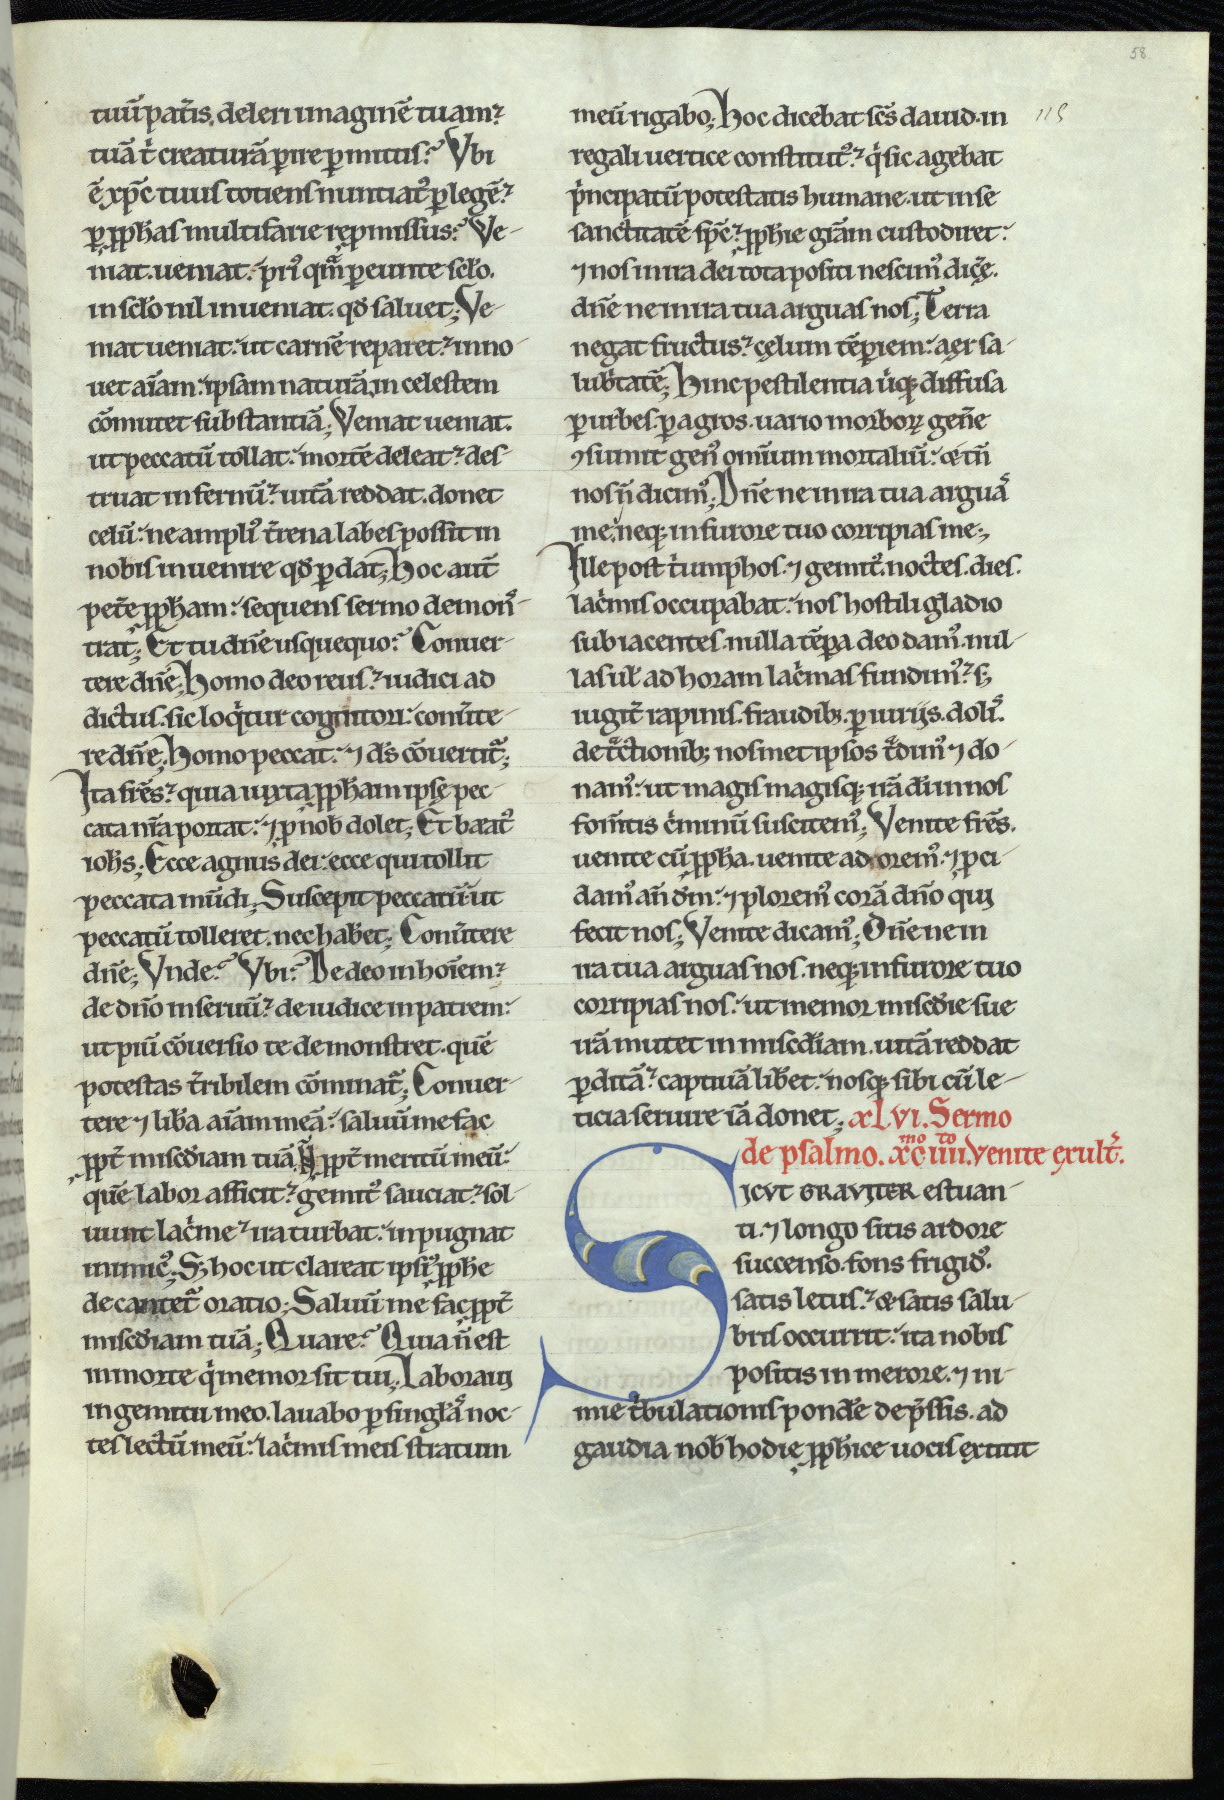 58
115
tuũ pat̃is. deleri imaginẽ tuam?
tuã t̃ creaturã ꝑire ꝑmittis? Vbi
ẽ xp̃c tuus totiens nuntiat᷒ ꝑ legẽ?
ꝑ ꝓph̃as multifarie repmissus? Ve-
niat. ueniat. pri᷒ qm̃ ꝑeunte scło.
in scło nil inueniat. qđ saluet; Ve-
niat ueniat. ut carnẽ reparet? inno-
uet aĩam. ipsam naturã in celestem
cõmutet substantiã; Veniat ueniat.
ut peccatũ tollat. mortẽ deleat? des-
truat infernũ? uitã reddat. donet
celũ. ne ampli᷒ t̃rena labes possit in
nobis inuenire qđ ꝑdat; Hoc aut̃
pet̃e ꝓph̃am. sequens sermo demons̃-
trat; Et tu dñe usquequo? Conuer-
tere dñe; Homo deo reus? iudici ad
dictus. sic loq̃tur cognitori. conũte-
re dñe; Homo peccat. ⁊ d̃s cõuertit̃;
Ita fr̃es? quia iuxta ꝓph̃am ipse pec-
cata nr̃a portat. ⁊ ꝓ nob̃ dolet; Et beat᷒
ioh̃s; Ecce agnus dei. ecce qui tollit
peccata mũdi; Suscepit peccatũ. ut
peccatũ tolleret. nec haberet; Conũtere
dñe; Vnde? Vbi? De deo in hoĩem?
de dño in seruũ? de iudice in patrem.
ut piũ cõuersio te demonstret. quẽ
potestas t̃ribilem cõminat̃; Conuer-
tere ⁊ lib̃a aĩam meã. saluũ me fac
ꝓpt̃ misc̃diam tuã. Ñ ꝓpt̃ meritũ meũ.
quẽ labor afficit? gemit᷒ sauciat? sol-
uunt lac̃me? ira turbat. inpugnat
inimic᷒; S; hoc ut clareat ipsi᷒ ꝓph̃e
decantet̃ oratio; Saluũ me fac ꝓpt̃
misc̃diam tuã; Quare? Quia ñ est
in morte q̃ memor sit tui; Laboraui
in gemitu meo. lauabo ꝑ singłas noc-
tes lectũ meũ. lac̃mis meis stratum
meũ rigabo; Hoc dicebat sc̃s dauid. in
regali uertice constitut᷒? q̃ sic agebat
p̃ncipatũ potestatis humane. ut in se
sanctitatẽ sp̃c? ꝓph̃ie gr̃am custodiret.
⁊ nos in ira dei tota positi nescim᷒ dic̃e.
dñe ne in ira tua arguas nos; Terra
negat fructus? cęlum tẽꝑiem. aer sa-
lub̃tatẽ; Hinc pestilentia ũiq; diffusa
ꝑ urbes. ꝑ agros. uario morboꝝ geñe
ꝯsumit gen᷒ omĩum mortaliũ. & tñ
nos ñ dicim᷒; Dñe ne in ira tua arguas
me. neq; in furore tuo corripias me;
Ille post t̃umphos. ⁊ gemit᷒. noctes. dies.
lac̃mis occupabat. nos hostili gladio
subiacentes. nulla tẽꝑa deo dam᷒. nul-
las uł ad horam lac̃mas fundim᷒? s;
iugit̃ rapinis. fraudib;. ꝑiurijs. dolis.
det̃ctionib; nosmet ipsos t̃dim᷒ ⁊ do-
nam᷒. ut magis magisq; irã di in nos
fom̃tis c̃minũ suscitem᷒; Venite fr̃es.
uenite cũ ꝓph̃a. uenite adorem᷒. ⁊ ꝓci-
dam᷒ añ dm̃. ⁊ plorem᷒ corã dño qui
fecit nos; Venite dicam᷒; Dñe ne in
ira tua arguas nos. neq; in furore tuo
corripias nos. ut memor misc̃die sue
irã mutet in misc̃diam. uitã reddat
ꝑditã? captiuã lib̃et. nosq; sibi cũ le-
ticia seruire iã donet; XLVI. Sermo
de psalmo. xc͏ᵐᵒ iiiiᵗᵒ. Venite exult̃.
SICVT GRAVITER estuan-
ti. ⁊ longo sitis ardore
succenso. fons frigid᷒.
satis letus? & satis salu-
bris occurrit. ita nobis
positis in merore. ⁊ ni-
mie t̃bulationis pond̃e dep̃ssis. ad
gaudia nob̃ hodie ꝓph̃ice uocis extitit